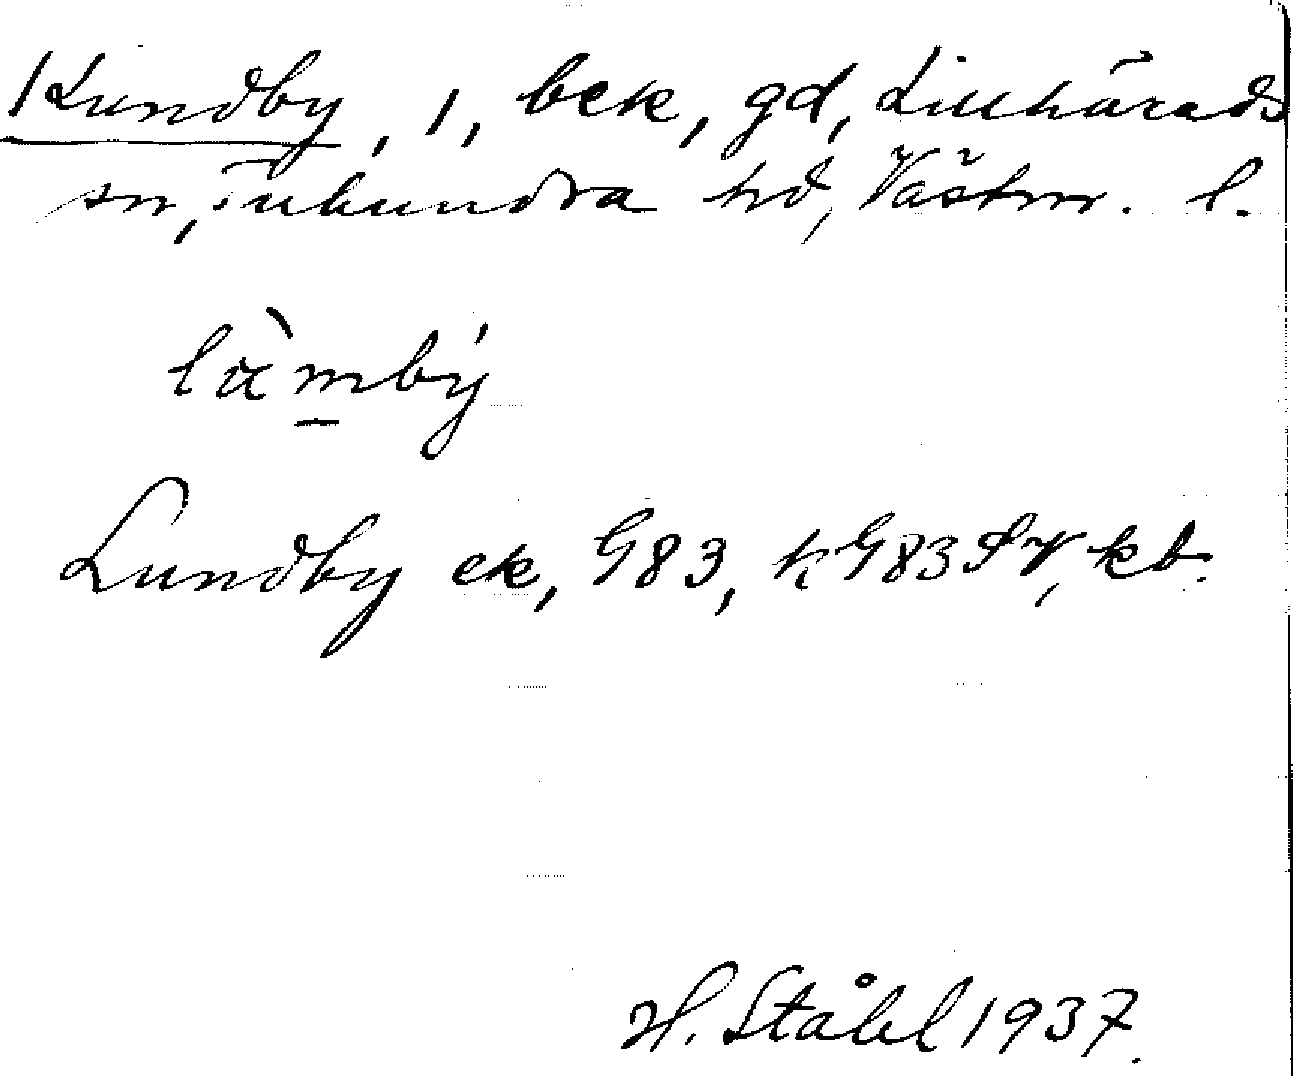 Lundby, 1, bck, gd, Lillhärads
sn, Tuhundra hd, Västm. l.
Lundby ek, G83, kG83 SV, kb.
H. Ståhl 1937.